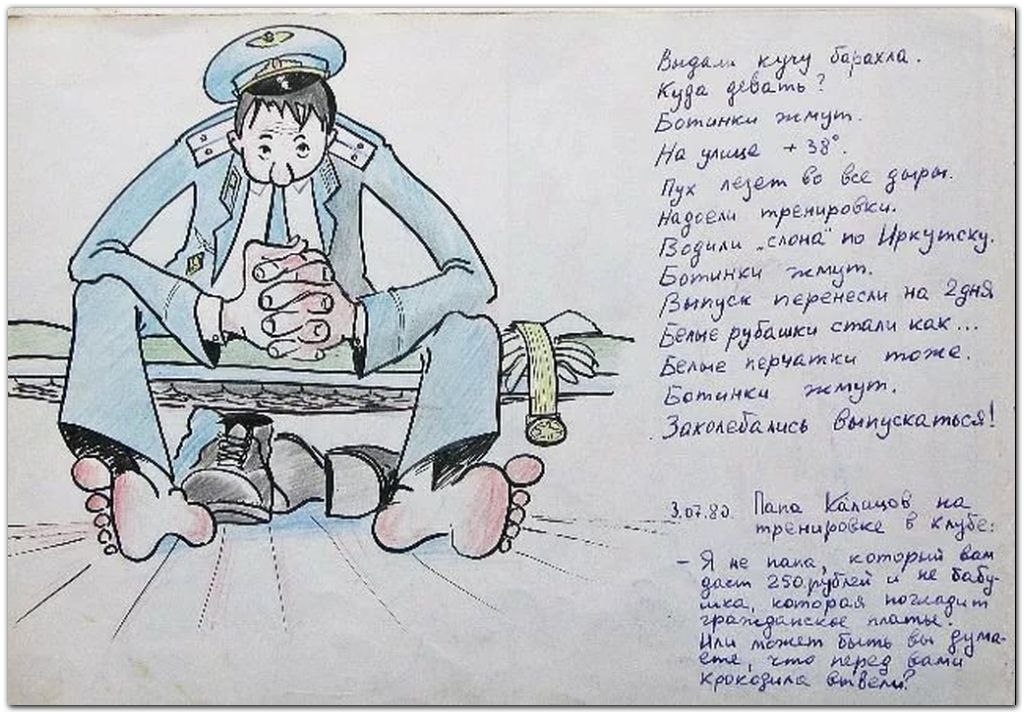 Выдали кучу барахла.
Куда девать?
Ботинки жмут.
На улице +38°.
Пух лезет во все дыры.
Надоели тренировки.
Водили „слона" по Иркутску.
Ботинки жмут.
Выпуск перенесли на 2 дня
Белые рубашки стали как...
Белые перчатки тоже.
Ботинки жмут.
Заколебались выпускаться!
3.07.80 Папа Калицов на
тренировке в клубе:
- Я не папа, который вам
даст 250 рублей и не бабу-
шка, которая погладит
гражданское платье.
Или может быть вы дума-
ете, что перед вами
крокодила вывели?